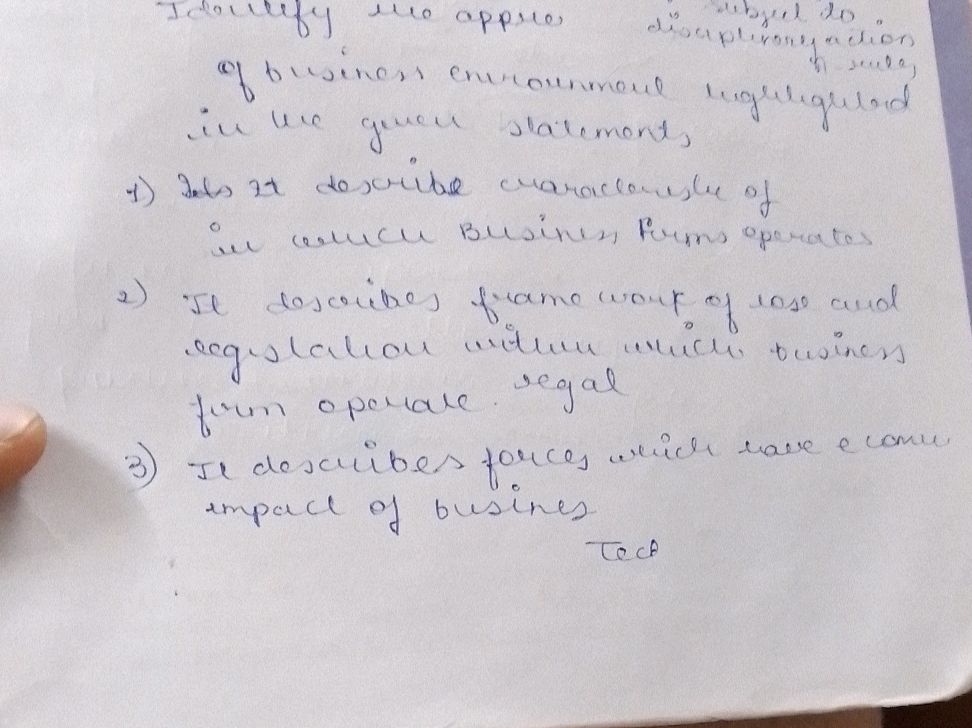 Identify the appro
subject to
disciplinary action
of rules
of business environment highlighted
in the given statements
1) It describe characteristic of
in which Business Firms operates
2) It describes frame work of law and
legislation within which business
firm operate. legal
3) It describes forces which have econic
impact of busines
Tech